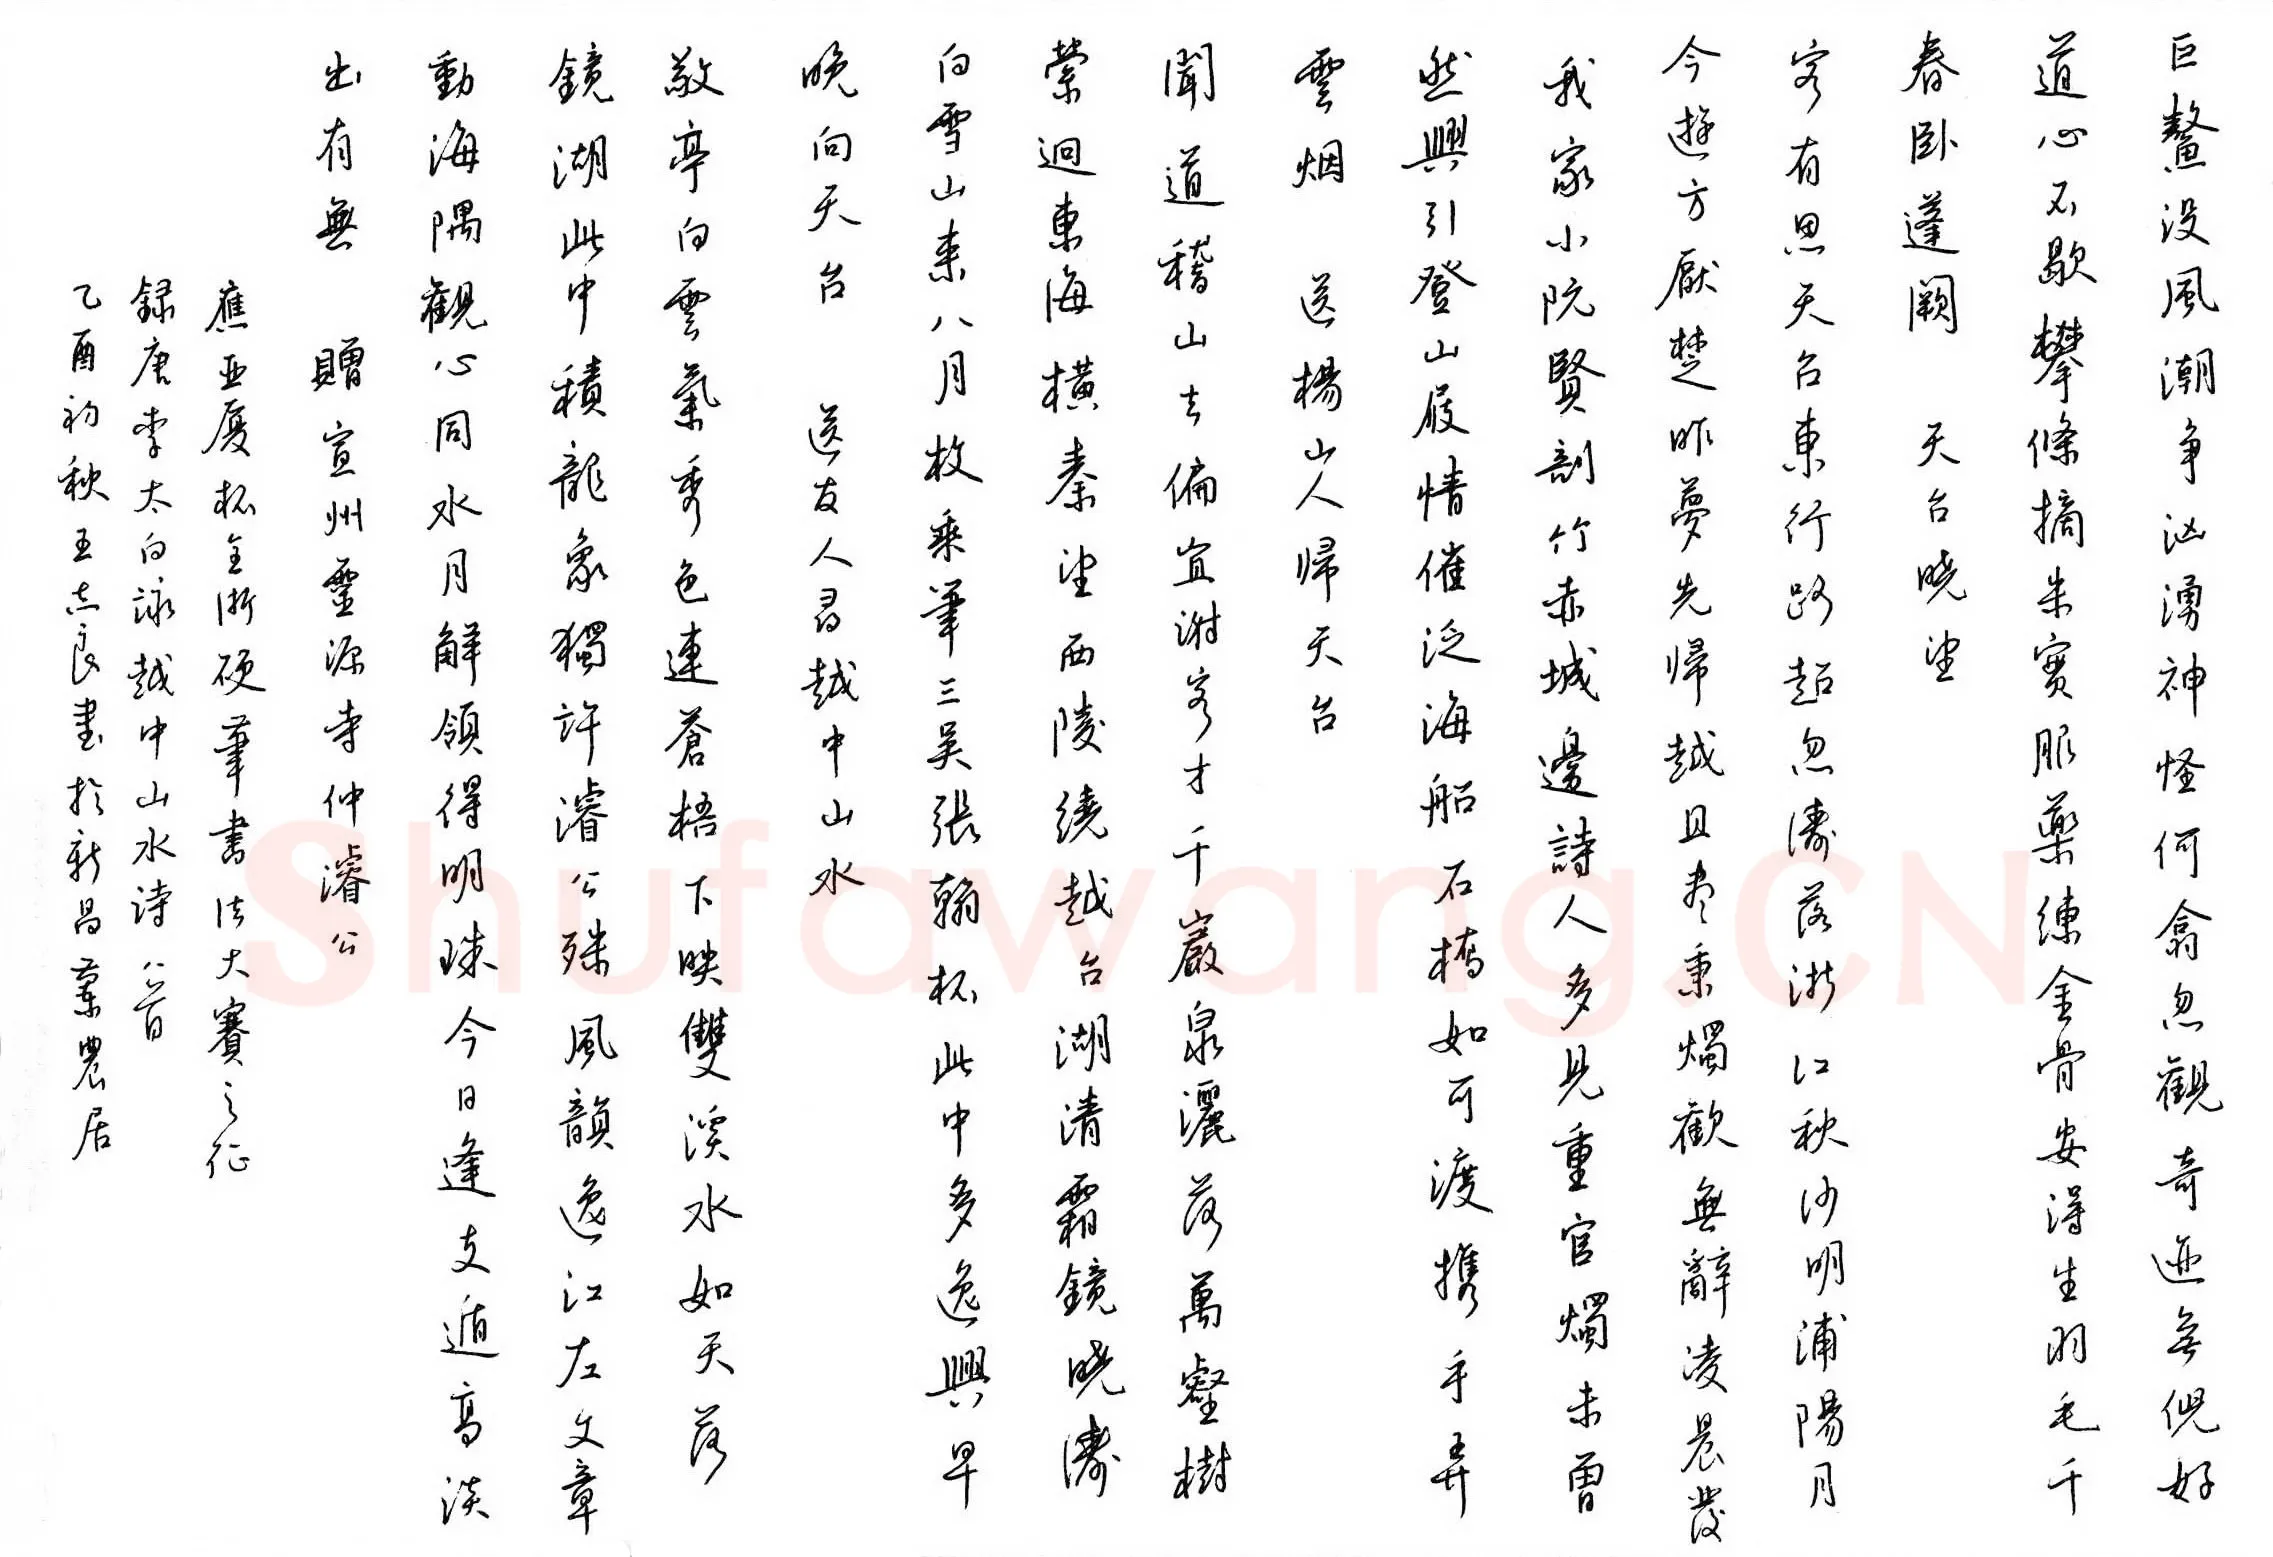 巨鰲没風潮争汹湧神怪何翕忽觀奇迹無倪好
道心不歇攀條摘朱實服藥練金骨安得生羽毛千
春卧蓬闕 天台曉望
客有思天台東行路超忽濤落浙江秋沙明浦陽月
今遊方厭楚昨夢先歸越且盡秉燭歡無辭凌晨發
我家小阮賢剖竹赤城邊詩人多見重官燭未曾
然興引登山屐情催泛海船石橋如可渡携手弄
雲烟 送楊山人歸天台
聞道稽山去偏宜謝客才千巖泉灑落萬壑樹
縈迴東海橫秦望西陵繞越台湖清霜鏡曉濤
白雪山来八月枚乘筆三吴張翰杯此中多逸興早
晚向天台 送友人尋越中山水
敬亭白雲氣秀色連蒼梧下映雙溪水如天落
鏡湖此中積龍象獨許濬公殊風韻逸江左文章
動海隅觀心同水月解領得明珠今日逢支遁高談
出有無 贈宣州靈源寺仲濬公
應亚厦杯全浙硬筆書法大賽之征
録唐李太白詠越中山水詩八首
乙酉初秋王志良書於新昌蘭農居
Shufawang.CN